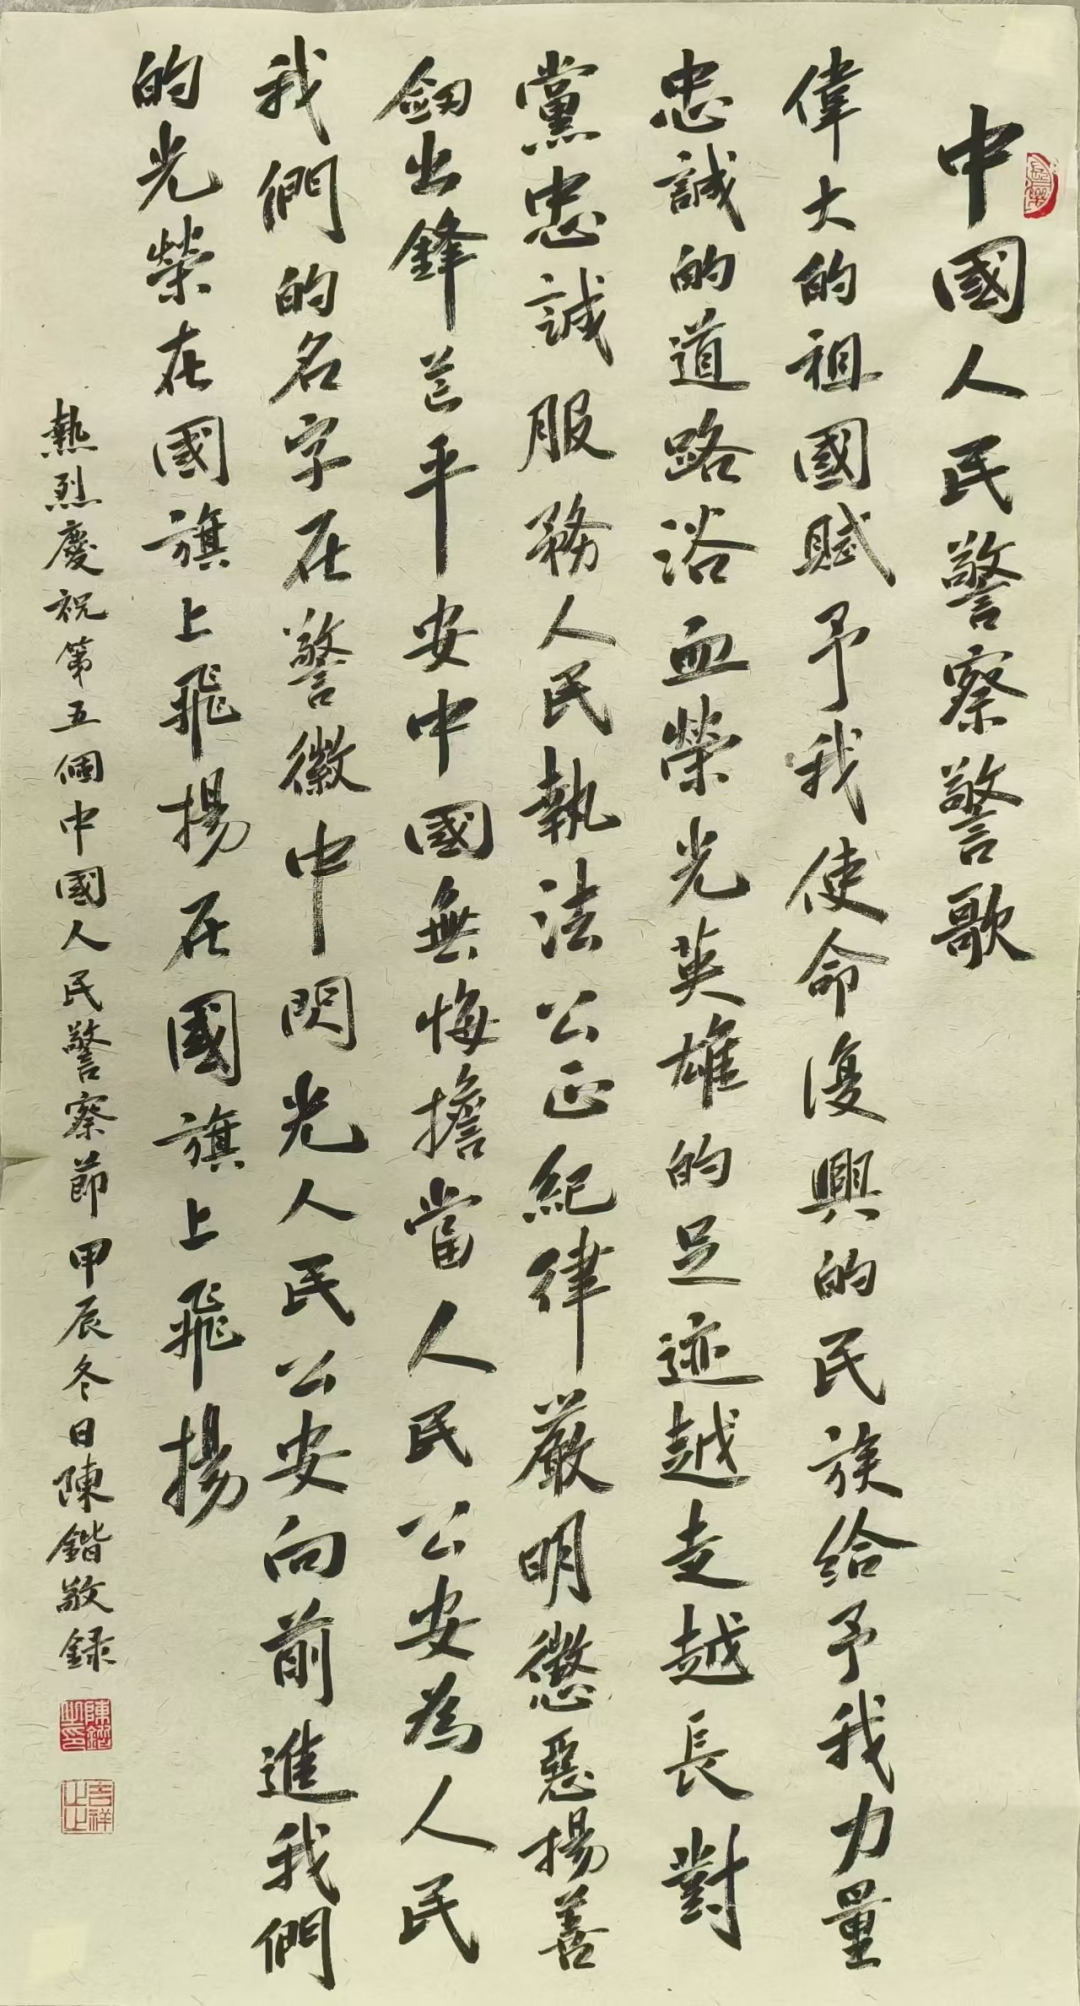 中國人民警察警歌
偉大的祖國賦予我使命復興的民族给予我力量
忠誠的道路浴血榮光英雄的足迹越走越長對
黨忠誠服務人民執法公正紀律嚴明懲惡揚善
劒出鋒芒平安中國無悔擔當人民公安為人民
我們的名字在警徽中閃光人民公安向前進我們
的光榮在國旗上飛揚在國旗上飛揚
熱烈慶祝第五個中國人民警察節甲辰冬日陳鍇敬録
陳鍇之印
吉祥止止